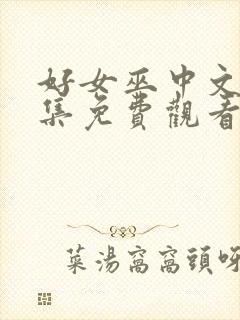 好女巫中文
集免費觀看
菜湯窩窩頭呀